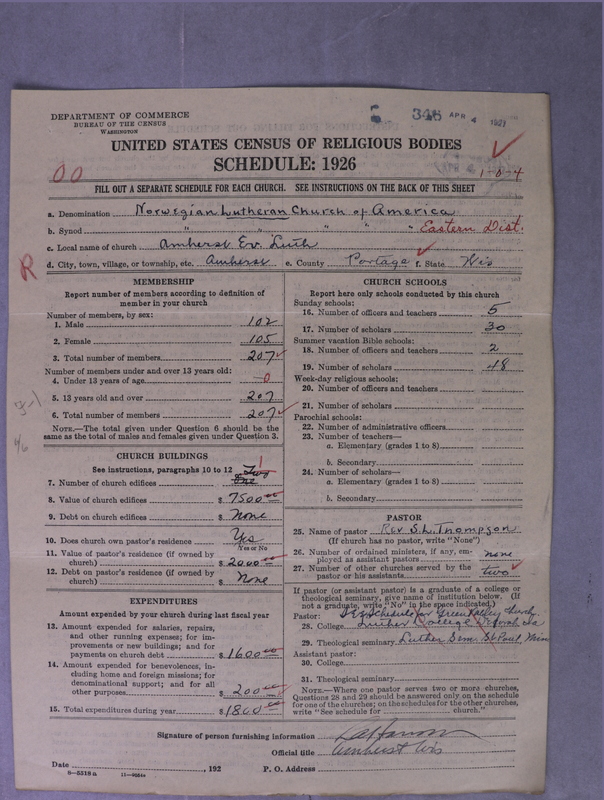 DEPARTMENT OF COMMERCE
BUREAU OF THE CENSUS
WASHINGTON
346 APR 4 1927
UNITED STATES CENSUS OF RELIGIOUS BODIES
SCHEDULE: 1926
00
1-0-4
FILL OUT A SEPARATE SCHEDULE FOR EACH CHURCH. SEE INSTRUCTIONS ON THE BACK OF THIS SHEET
a. Denomination Norwegian Lutheran Church of America
b. Synod " " " " " Eastern Dist.
c. Local name of church Amherst Ev. Luth
d. City, town, village, or township, etc. Amherst e. County Portage f. State Wis
R
MEMBERSHIP
Report number of members according to definition of
member in your church
Number of members, by sex:
1. Male 102
2. Female 105
3. Total number of members 207
Number of members under and over 13 years old:
4. Under 13 years of age 0
5. 13 years old and over 207
6. Total number of members 207
NOTE.—The total given under Question 6 should be the
same as the total of males and females given under Question 3.
CHURCH BUILDINGS
See instructions, paragraphs 10 to 12
1
Two
7. Number of church edifices One
8. Value of church edifices $ 7500 00
9. Debt on church edifices $ None
10. Does church own pastor's residence Yes
Yes or No
11. Value of pastor's residence (if owned by
church) $ 2000 00
12. Debt on pastor's residence (if owned by
church) $ None
EXPENDITURES
Amount expended by your church during last fiscal year
13. Amount expended for salaries, repairs,
and other running expenses; for im-
provements or new buildings; and for
payments on church debt $ 1600 00
14. Amount expended for benevolences, in-
cluding home and foreign missions; for
denominational support; and for all
other purposes $ 200 00
15. Total expenditures during year $ 1800 00
CHURCH SCHOOLS
Report here only schools conducted by this church
Sunday schools:
16. Number of officers and teachers 5
17. Number of scholars 30
Summer vacation Bible schools:
18. Number of officers and teachers 2
19. Number of scholars 48
Week-day religious schools:
20. Number of officers and teachers
21. Number of scholars
Parochial schools:
22. Number of administrative officers
23. Number of teachers—
a. Elementary (grades 1 to 8)
b. Secondary
24. Number of scholars—
a. Elementary (grades 1 to 8)
b. Secondary
PASTOR
25. Name of pastor Rev S. L. Thompson
(If church has no pastor, write "None")
26. Number of ordained ministers, if any, em-
ployed as assistant pastors none
27. Number of other churches served by the
pastor or his assistants two
If pastor (or assistant pastor) is a graduate of a college or
theological seminary, give name of institution below. (If
not a graduate, write "No" in the space indicated.)
Pastor: See Schedule for Church
28. College Luther College Decorah Ia
29. Theological seminary Luther Sem. St Paul, Minn
Assistant pastor:
30. College
31. Theological seminary
NOTE.—Where one pastor serves two or more churches,
Questions 28 and 29 should be answered only on the schedule
for one of the churches; on the schedules for the other churches,
write "See schedule for church."
Signature of person furnishing information
Official title Amherst Wis
Date , 192 P. O. Address
8—5318a